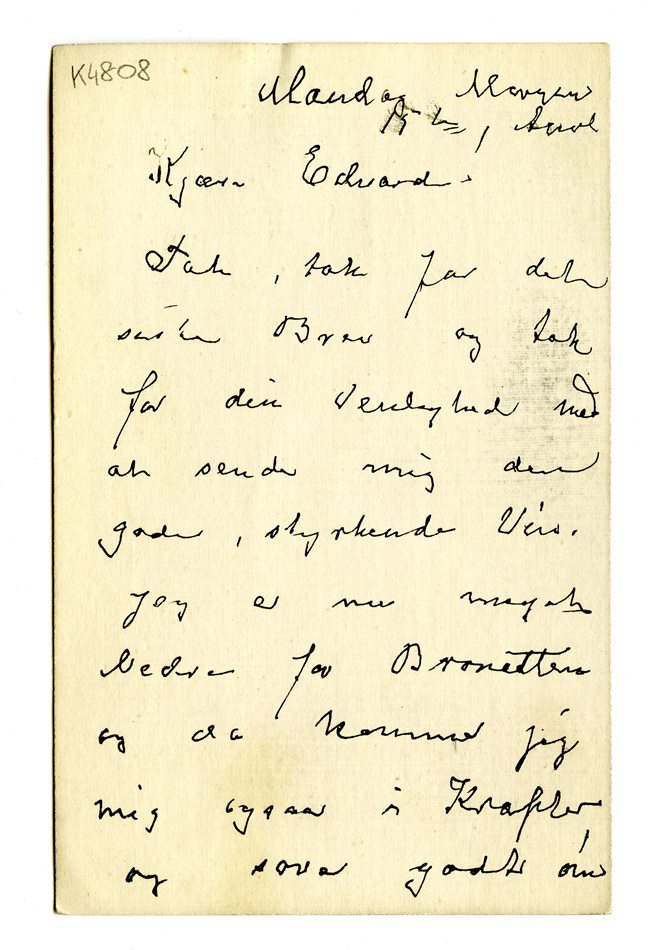 K4808
Mandag Morgen
15de, April
Kjære Edvard.
Tak, tak for det
sidste Brev og tak
for din Venlighed med
at sende mig den
gode, styrkende Vin.
Jeg er nu meget
bedre for Bronkitten
og da kommer jeg
mig ogsaa i Kræfter
og sover godt om